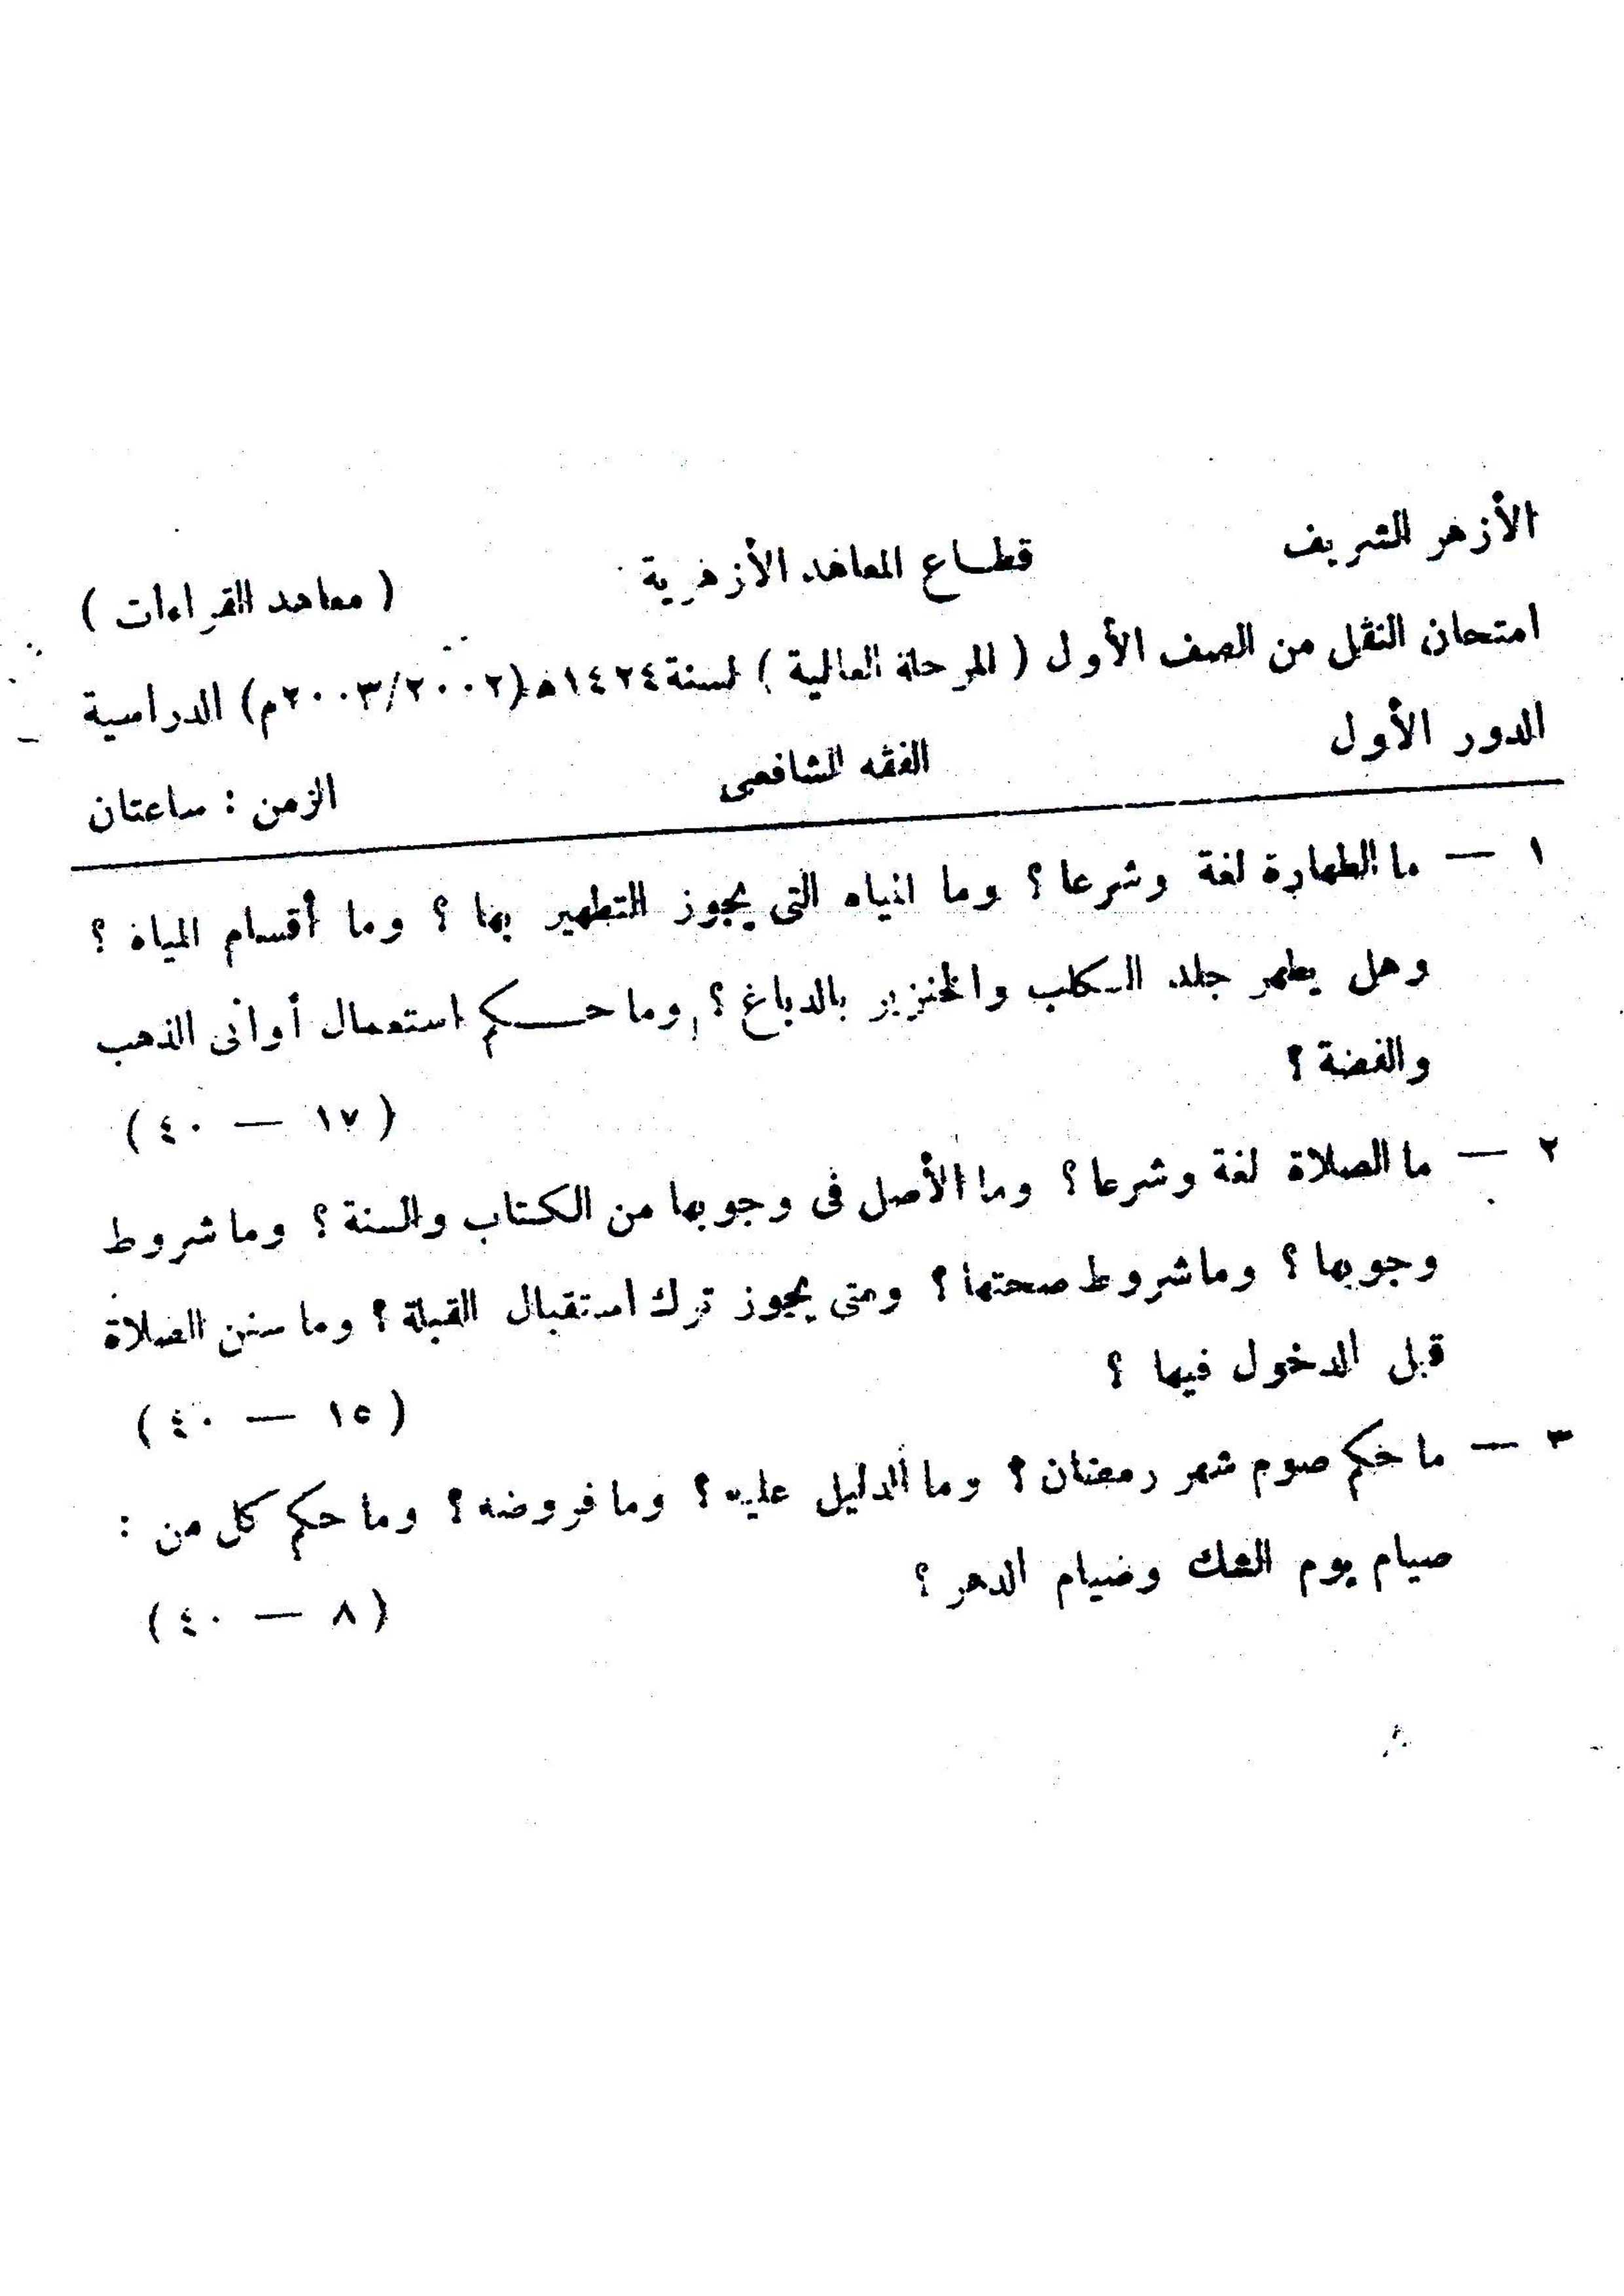 الأزهر الشريف قطاع المعاهد الأزهرية ( معاهد القراءات )
امتحان النقل من الصف الأول ( المرحلة العالية ) لسنة ١٤٢٤هـ (٢٠٠٣/٢٠٠٢م) الدراسية
الدور الأول الفقه الشافعى الزمن : ساعتان
١ — ما الطهارة لغة وشرعا ؟ وما المياه التى يجوز التطهير بها ؟ وما أقسام المياه ؟
وهل يطهر جلد الكلب والخنزير بالدباغ ؟ وما حكم استعمال أوانى الذهب
والفضة ؟
( ١٧ — ٤٠ )
٢ — ما الصلاة لغة وشرعا ؟ وما الأصل فى وجوبها من الكتاب والسنة ؟ وما شروط
وجوبها ؟ وما شروط صحتها ؟ ومتى يجوز ترك استقبال القبلة ؟ وما سنن الصلاة
قبل الدخول فيها ؟
( ١٥ — ٤٠ )
٣ — ما حكم صوم شهر رمضان ؟ وما الدليل عليه ؟ وما فروضه ؟ وما حكم كل من :
صيام يوم الشك وصيام الدهر ؟
( ٨ — ٤٠ )